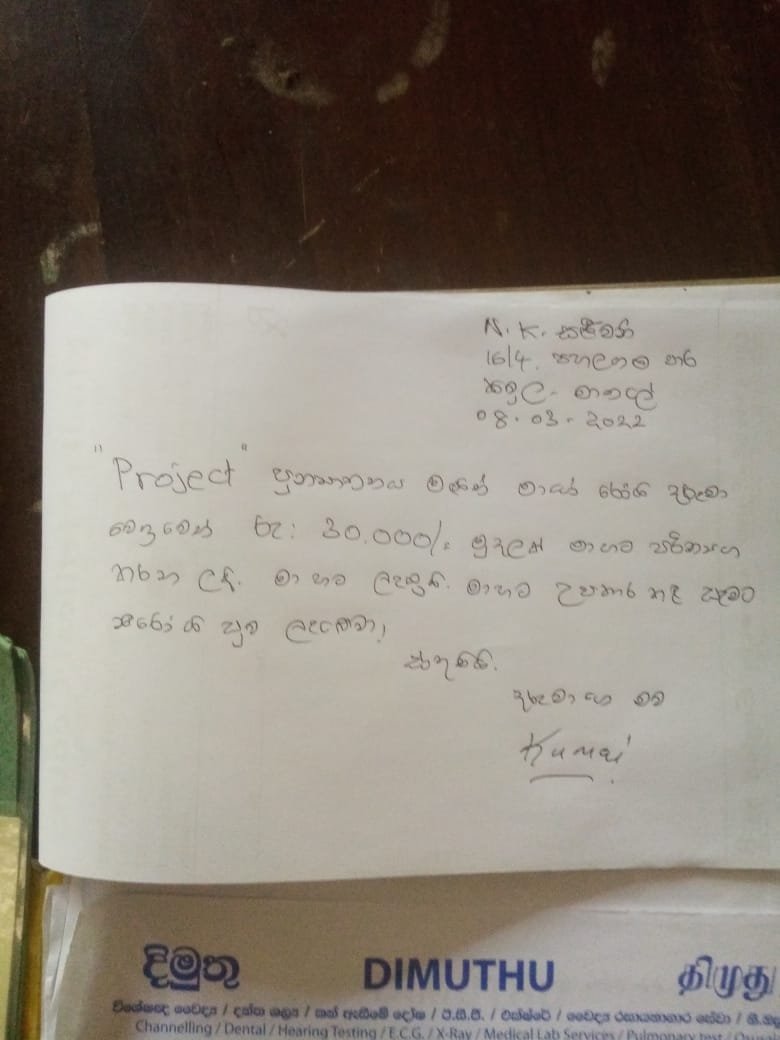 N. K. සංජීවනී
16/4. පහලගම පාර
කපුල - මාතලේ
08.03-2022
"Project" ප්‍රකාශනය මගින් මාගේ රෝගී දරුවා
වෙනුවෙන් රු: 30.000/= මුදලක් මා හට පරිත්‍යාග
කරන ලදී. මා හට ලැබුණි. මාහට උපකාර කළ සැමට
නිරෝගී සුව ලැබේවා!
ස්තූතියි.
දරුවාගෙ මව
Kumari
දිමුතු DIMUTHU திமுது
විශේෂඥ වෛද්‍ය / දන්ත ශල්‍ය / කන් ඇසීමේ දෝෂ / ඊ.සී.ජී. / එක්ස්රේ / වෛද්‍ය රසායනාගාර සේවා /
Channelling / Dental / Hearing Testing / E.C.G. / X-Ray / Medical Lab Services / Pulmonary test /